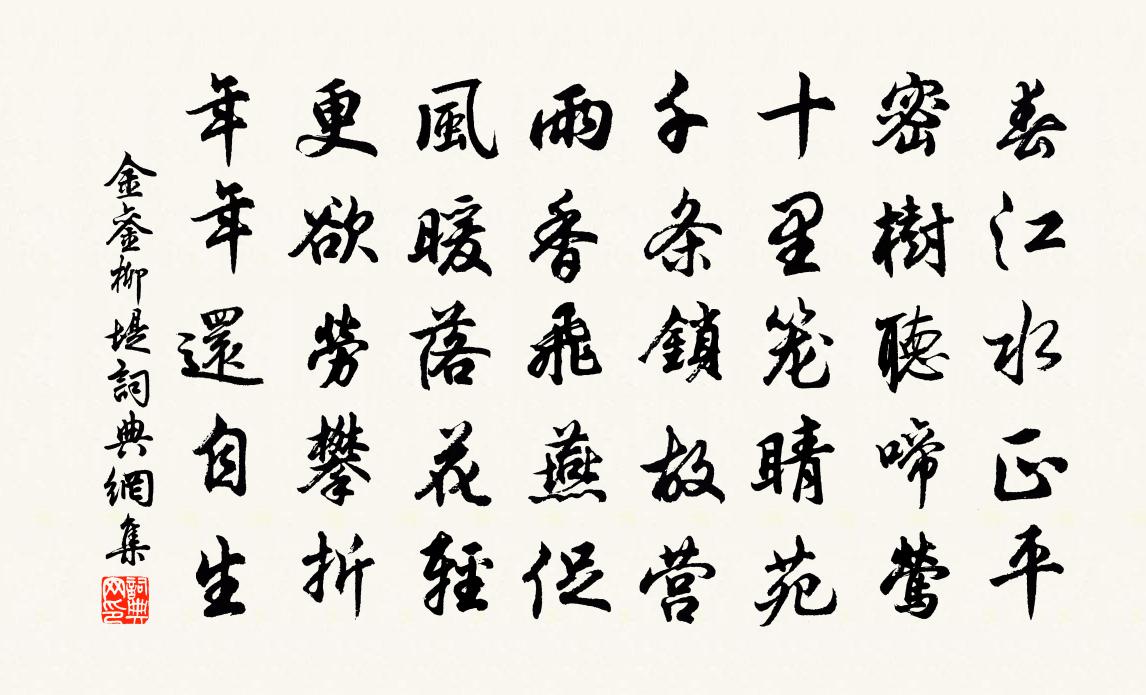 春江水正平
密樹聽啼鶯
十里笼晴苑
千条鎖故营
雨香飛燕促
風暖落花輕
更欲勞攀折
年年還自生
金銮柳堤詞典網集
詞典网印